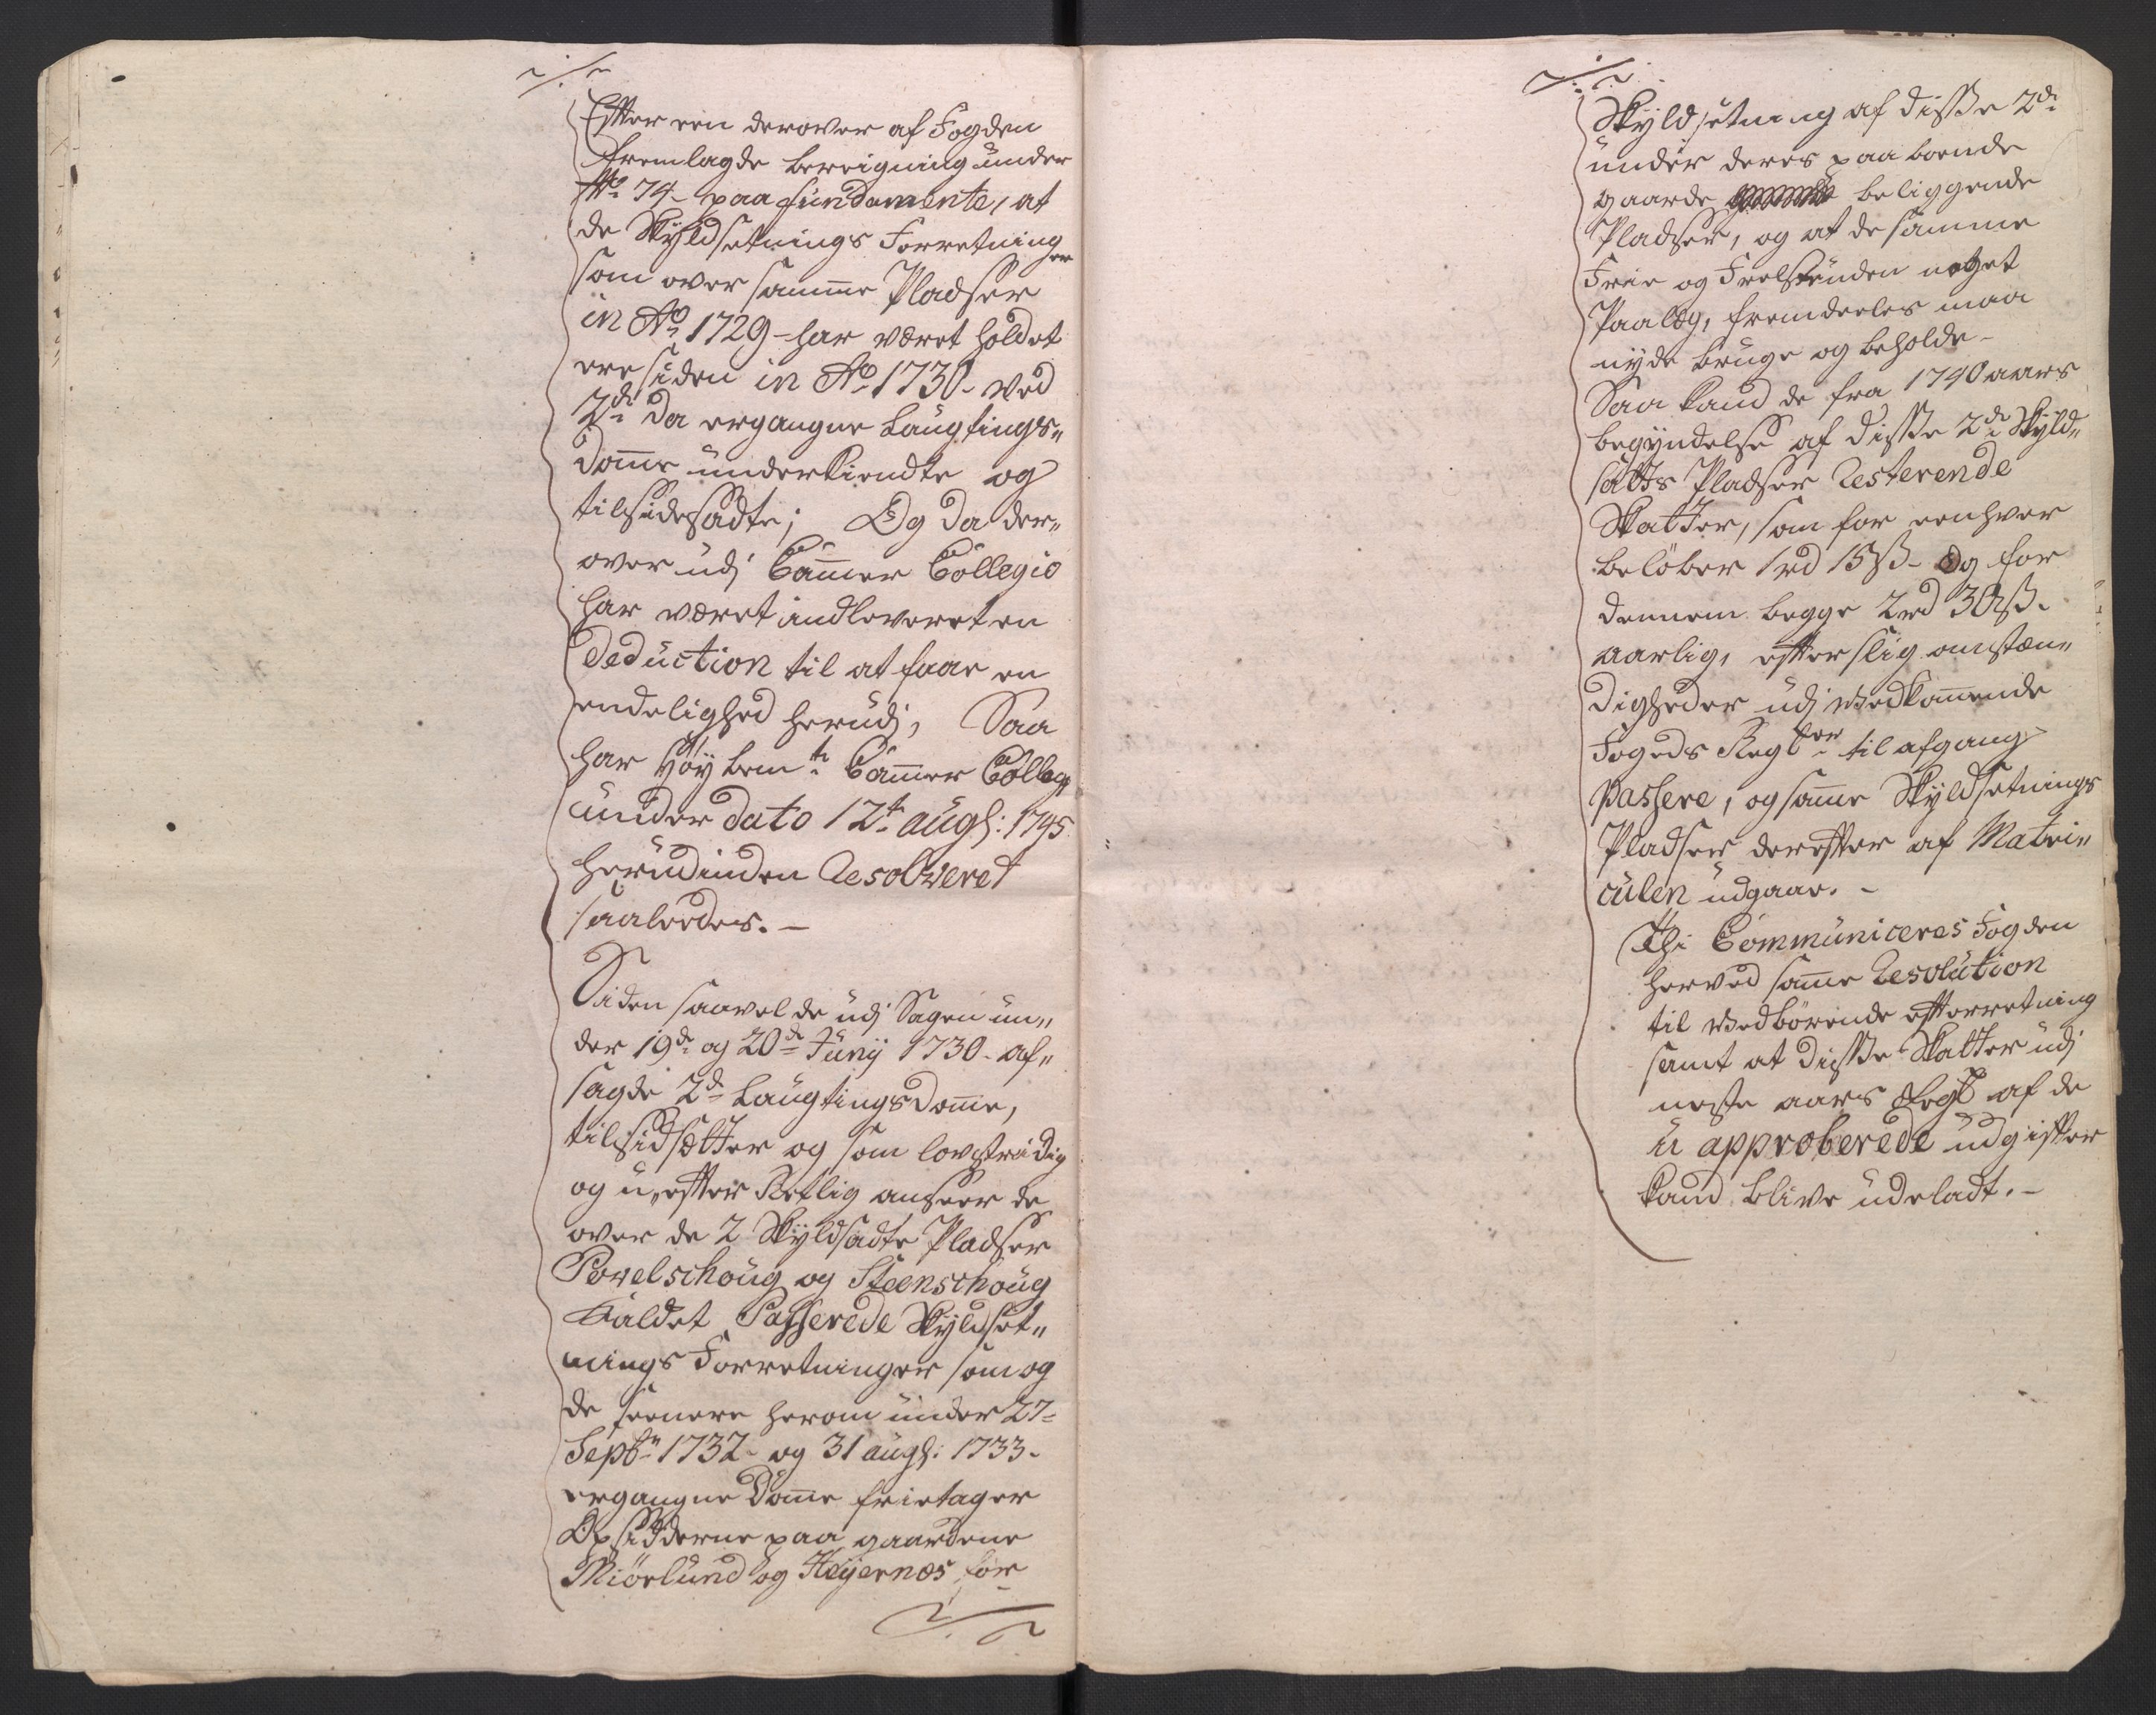 Efter een derover af Fogden
fremlagde bereigning under
No 74 paa fundamente, at
de Skyldsetnings Forretninger
som over samme Pladser
in Ao 1729 har været holdet
ere siden in Ao 1730 ved
2de da ergangne Laugtings„
Domme underkiendte og
tilsidesadte; Og da der„
over udj Cammer Collegio
har været indleveret en
Deduction til at faae en
endelighed herudj, Saa
har Høybemte Cammer Colleg:
under dato 12te Augs: 1745
herudinden Resolveret
saaledes. –
Siden saavel de udj Sagen un„
der 19de og 20de Junij 1730 af„
sagde 2de Laugtings Domme,
tilsidsetter og som lovstridig
og u„efter Retlig anseer de
over de 2 Skyldsadte Pladser
Povelschoug og Steenschoug
kaldet Passerede Skyldset„
nings Forretninger som og
de seenere herom under 27
Septbr 1732 og 31 Augs: 1733
ergangne Domme frietager
Opsidderne paa gaardene
Miørlund og Heyernes for
Skyldsetning af disse 2de
under deres paaboende
gaarde beliggende
Pladser, og at de samme
Frie og Frelst uden noget
Paalæg, fremdeeles maa
nyde bruge og beholde –
Saa kand de fra 1740 aars
begyndelse af disse 2de Skyld„
satte Pladser Resterende
Skatter, som for eenhver
beløber 1 rd 15 ß – Og for
dennem begge 2 rd 30 ß
aarlig, efter slig omstæn„
digheder udj vedkommende
Fogeds Regbser til afgang
passere, og samme Skyldsetnings
Pladser derefter af Matri„
culen udgaar. –
Thi Communiceres Fogden
herved samme Resolution
til vedbørende efterretning
samt at disse Skatter udj
neste aars Regb af de
u approberede udgifter
kand blive udeladt. –